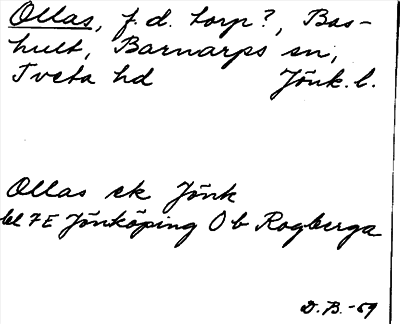 Ollas, f.d. torp?, Bos-
hult, Barnarps sn,
Tveta hd Jönk. l.
Ollas ek Jönk
bl 7E Jönköping O b Rogberga
D.B.-59